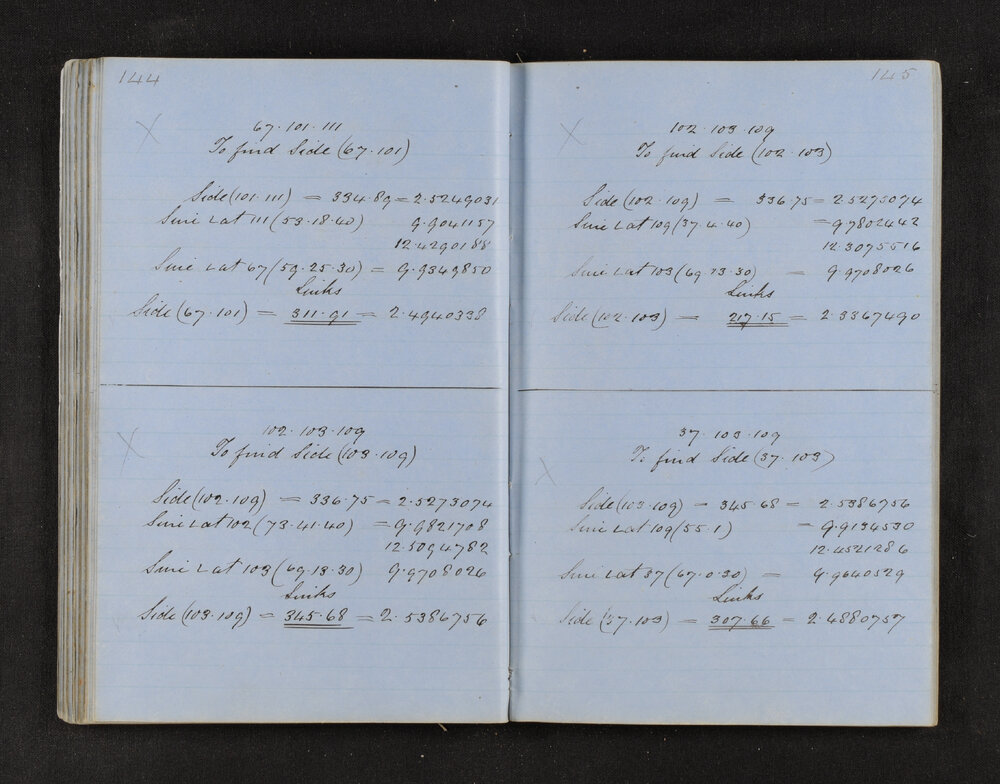 144
67.101.111
To find Side (67.101)
Side (101.111) = 334.89 = 2.5249031
Sine ∠ at 111 (53.18.40) 9.9041157
12.4290188
Sine ∠ at 67 (59.25.30) = 9.9349850
Links
Side (67.101) = 311.91 = 2.4940338
102.103.109
To find Side (103.109)
Side (102.109) = 336.75 = 2.5273074
Sine ∠ at 102 (73.41.40) = 9.9821708
12.5094782
Sine ∠ at 103 (69.13.30) 9.9708026
Links
Side (103.109) = 345.68 = 2.5386756
145
102.103.109
To find Side (102.103)
Side (102.109) = 336.75 = 2.5273074
Sine ∠ at 109 (37.4.40) = 9.7802442
12.3075516
Sine ∠ at 103 (69.13.30) = 9.9708026
Links
Side (102.103) = 217.15 = 2.3367490
37.103.109
To find Side (37.103)
Side (103.109) = 345.68 = 2.5386756
Sine ∠ at 109 (55.1) = 9.9134530
12.4521286
Sine ∠ at 37 (67.0.30) = 9.9640529
Links
Side (37.103) = 307.66 = 2.4880757